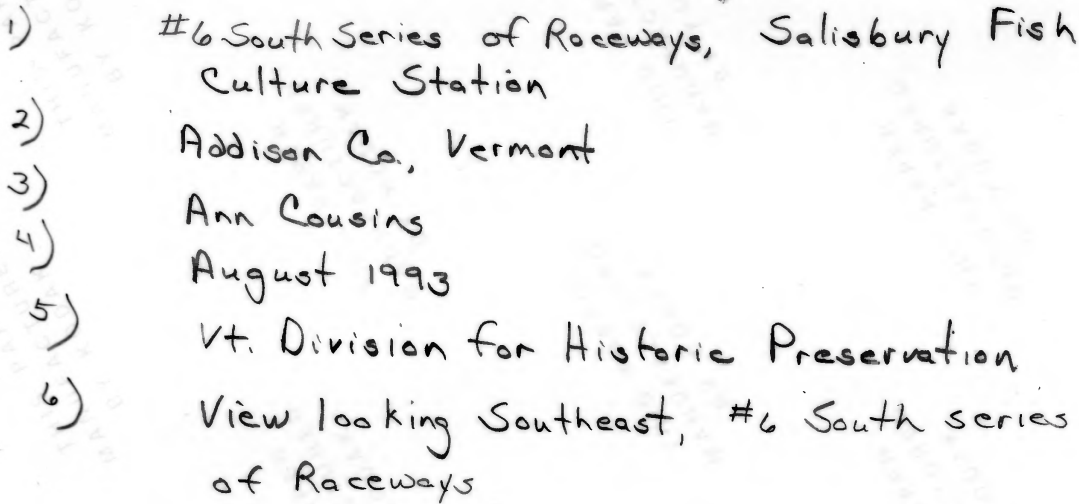 1) #6 South Series of Raceways, Salisbury Fish
Culture Station
2) Addison Co., Vermont
3) Ann Cousins
4) August 1993
5) Vt. Division for Historic Preservation
6) View looking Southeast, #6 South series
of Raceways